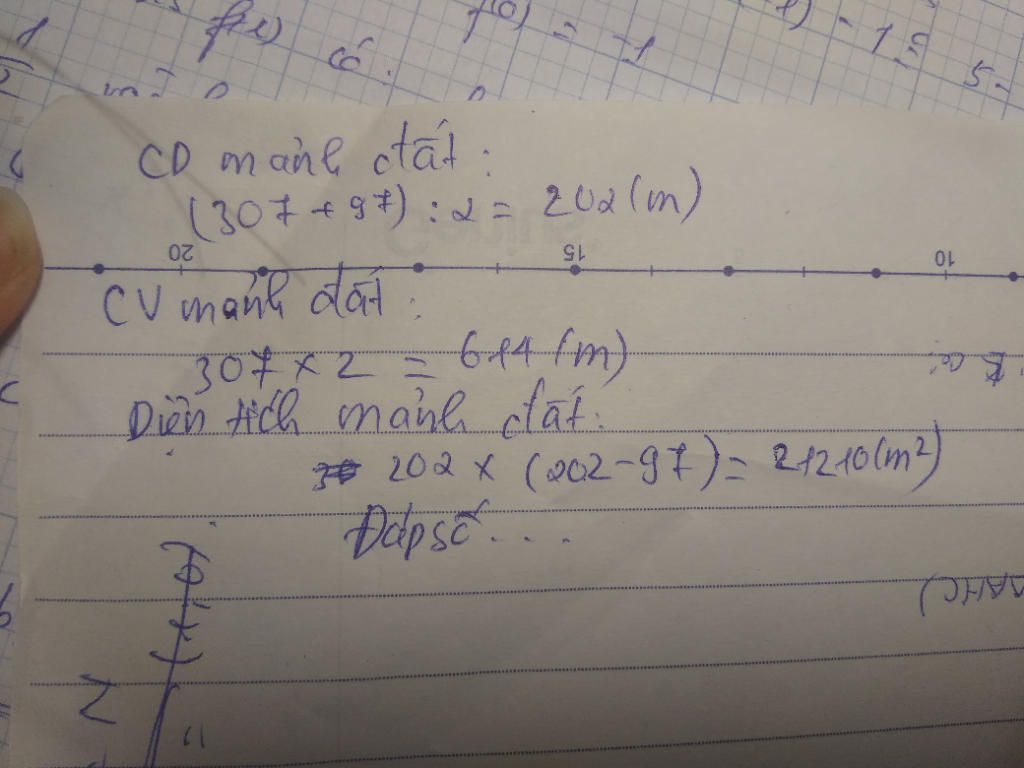 f(1)
có
f(0) = -1
5.
CD mảnh đất:
(307 + 97) : 2 = 202 (m)
20
15
10
CV mảnh đất:
307 × 2 = 614 (m)
Diện tích mảnh đất:
202 × (202 - 97) = 21210 (m²)
Đáp số ...